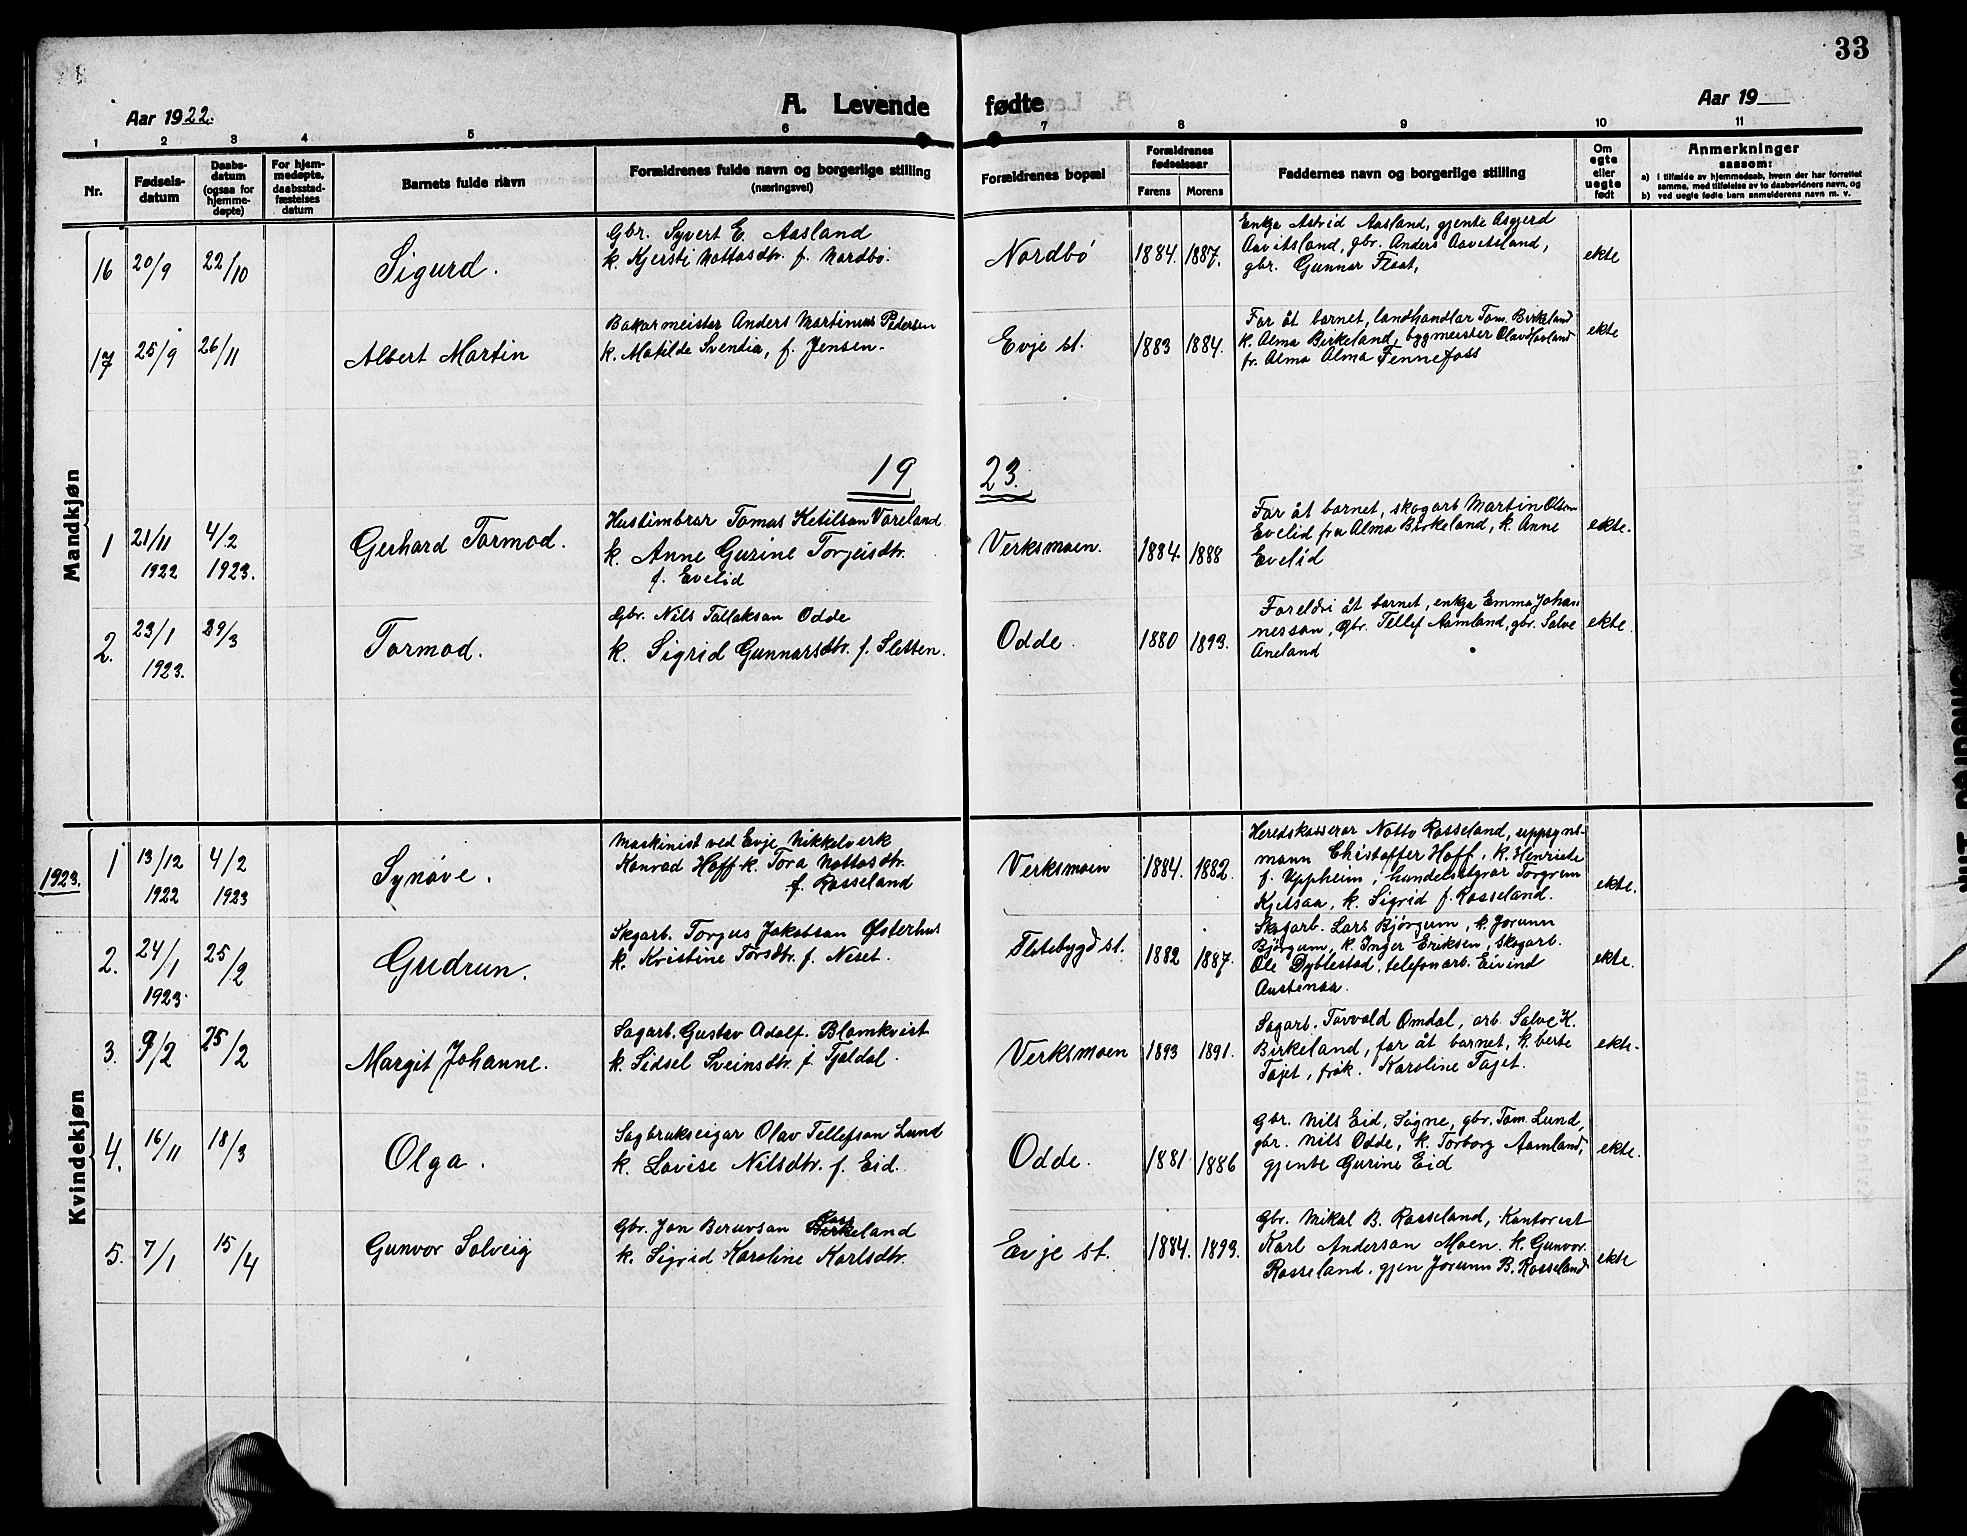 33
Aar 1922.
A. Levende fødte
Aar 19
1 2 3 4 5 6 7 8 9 10 11
Nr.
Fødsels-
datum
Daabs-
datum
(ogsaa for
hjemme-
døpte)
For hjem-
medøpte,
daabsstad-
fæstelses
datum
Barnets fulde navn
Forældrenes fulde navn og borgerlige stilling
(næringsvei)
Forældrenes bopæl
Forældrenes
fødselsaar
Farens Morens
Faddernes navn og borgerlige stilling
Om
egte
eller
uegte
født
Anmerkninger
saasom:
a) i tilfælde av hjemmedaab, hvem der har forrettet
samme, med tilføielse av to daabsvidners navn, og
b) ved uegte fødte barn anmelderens navn m. v.
Mandkjøn
16 20/9 22/10 Sigurd.
Gbr. Syvert E. Aasland
k. Kjersti Nottosdtr. f. Nordbø.
Nordbø 1884. 1887.
Enkja Astrid Aasland, gjente Asgjerd
Aavitsland, gbr. Anders Aavitsland,
gbr. Gunnar Flaat,
ekte
17 25/9 26/11 Albert Martin
Bakarmeister Anders Martinius Pedersen
k. Matilde Svendia, f. Jensen.
Evje st. 1883 1884.
Far åt barnet, landhandlar Tom. Birkeland
k. Alma Birkeland, bygmeister Olav Havland
fr. Alma Alma Fennefoss
ekte
19 23.
1 21/11 1922 4/2 1923. Gerhard Tormod.
Hustimbrar Tomas Ketilson Vareland
k. Anne Gurine Torjeisdtr.
f. Evelid
Verksmoen. 1884 1888
Far åt barnet, skogarb Martin Olson
Evelid fru Alma Birkeland, k. Anne
Evelid
ekte.
2. 23/1 1923. 29/3 Tormod.
Gbr. Nils Tallakson Odde
k. Sigrid Gunnarsdtr. f. Sletten.
Odde. 1880 1893.
Foreldri åt barnet, enkja Emma Johan
nesson, Gbr. Tellef Aamland, gbr. Salve
Aneland
ekte.
Kvindekjøn
1923.
1 13/12 1922 4/2 1923 Synøve.
Maskinist ved Evje Nikkelverk
Konrad Hoff. k. Tora Nottosdtr.
f. Rosseland
Verksmoen 1884. 1882.
Heredskasserar Notto Rosseland, uppsyns-
mann Christoffer Hoff, k. Henriete
f. Uppheim, handelsstyrar Torgrim
Kjetsaa, k. Sigrid f. Rosseland.
ekte.
2. 24/1 1923 25/2 Gudrun.
Skgarb. Torjus Jakobson Østerhus
k. Kristine Torsdtr. f. Neset.
Flatebygd st. 1882 1887.
Skogarb. Lars Bjørgum, k. Jorunn
Bjørgum, k. Inger Eriksen, skogarb.
Ole Dyblestad, telefonarb. Eivind
Austenaa.
ekte.
3. 9/2 25/2 Margit Johanne.
Sagarb. Gustav Adolf. Blomkvist
k. Sidsel Sveinsdtr. f. Tjaldal.
Verksmoen 1893 1891.
Sagarb. Torvald Omdal, arb. Salve K.
Birkeland, far åt barnet, k. berte
Tajet, frøk. Karoline Tajet.
ekte.
4. 16/11 18/3 Olga.
Sagbrukseigar Olav Tellefson Lund
k. Lovise Nilsdtr. f. Eid.
Odde. 1881 1886
Gbr. Nils Eid, Søgne, gbr. Tom. Lund,
gbr. Nils Odde, k. Torborg Aamland,
gjente Gurine Eid
ekte.
5. 7/1 15/4 Gunvor Solveig
Gbr. Jon Beruvson Rosseland
k. Sigrid Karoline Karlsdtr.
Evje st. 1884. 1893.
Gbr. Mikal B. Rosseland, Kantorist
Karl Anderson Moen. k. Gunvor
Rosseland. gjen Jorunn B. Rosseland
ekte